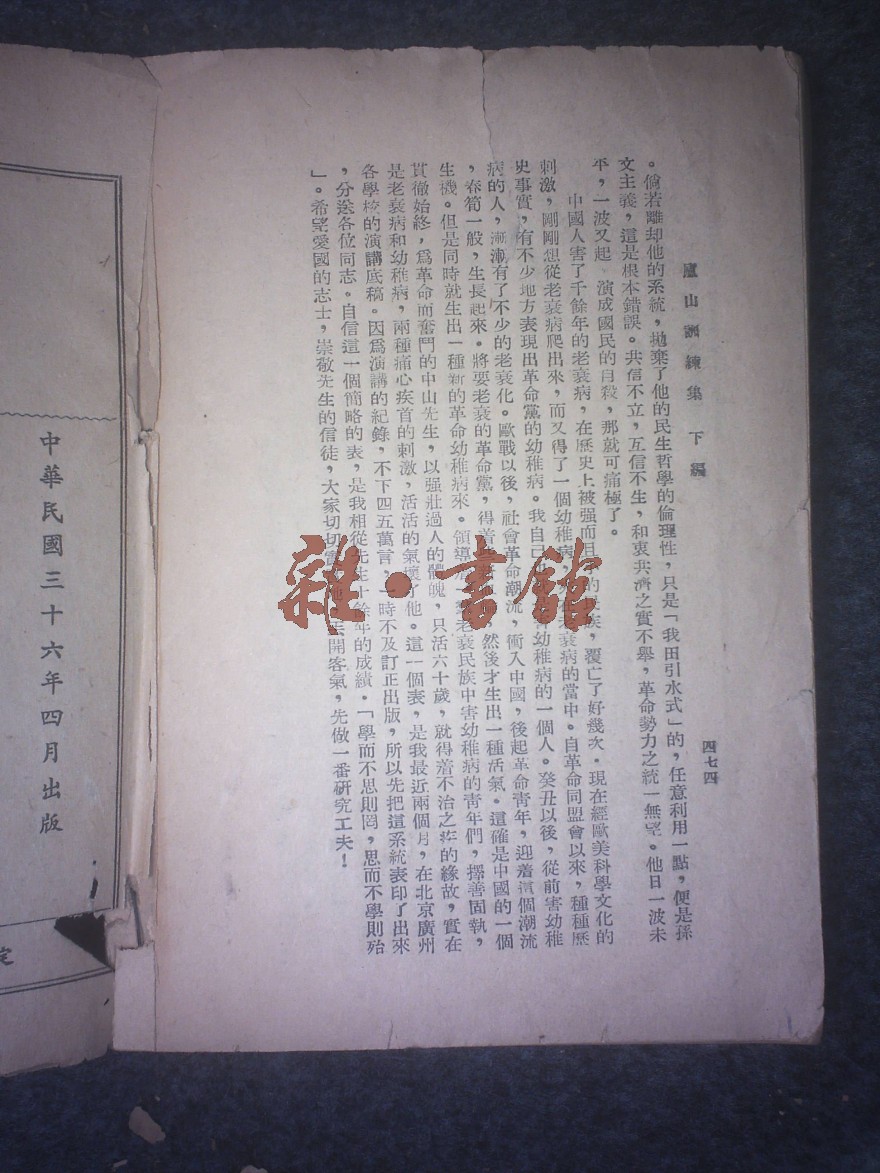 廬山訓練集 下編
四七四
。倘若離却他的系統，拋棄了他的民生哲學的倫理性，只是「我田引水式」的，任意利用一點，便是孫
文主義，這是根本錯誤。共信不立，互信不生，和衷共濟之實不舉，革命勢力之統一無望。他日一波未
平，一波又起 演成國民的自殺，那就可痛極了。
中國人害了千餘年的老衰病，在歷史上被强而且 的 族，覆亡了好幾次．現在經歐美科學文化的
刺激，剛剛想從老衰病爬出來，而又得了一個幼稚病， 在老衰病的當中。自革命同盟會以來，種種歷
史事實，有不少地方表現出革命黨的幼稚病。我自己 幼稚病的一個人。癸丑以後，從前害幼稚
病的人，漸漸有了不少的老衰化。歐戰以後，社會革命潮流，衝入中國，後起革命青年，迎着這個潮流
，春筍一般，生長起來。將要老衰的革命黨，得着 ，然後才生出一種活氣。這確是中國的一個
生機。但是同時就生出一種新的革命幼稚病來。領導 老衰民族中害幼稚病的青年們，擇善固執，
貫徹始終，爲革命而奮鬥的中山先生，以强壯過人的體魄，只活六十歲，就得着不治之症的緣故，實在
是老衰病和幼稚病，兩種痛心疾首的刺激，活活的氣壞了他。這一個表，是我最近兩個月，在北京廣州
各學校的演講底稿。因爲演講的紀錄，不下四五萬言，一時不及訂正出版，所以先把這系統表印了出來
，分送各位同志。自信這一個簡略的表，是我相從先生十餘年的成績．「學而不思則罔，思而不學則殆
」。希望愛國的志士，崇敬先生的信徒，大家切切實 開客氣，先做一番研究工夫！
中華民國三十六年四月出版
定
雜·書館